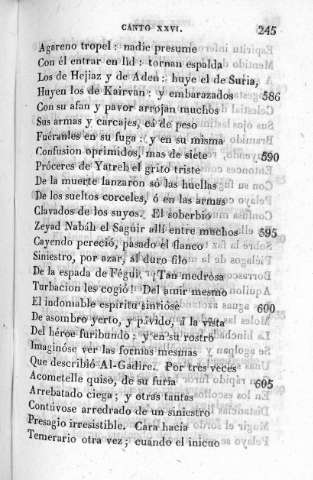 CANTO XXVI. 245
Agareno tropel: nadie presume
Con él entrar en lid: tornan espalda
Los de Hejiaz y de Aden: huye el de Suria,
Huyen los de Kairvan: y embarazados 586
Con su afan y pavor arrojan muchos
Sus armas y carcajes, ca de peso
Fuéranles en su fuga: y en su misma
Confusion oprimidos, mas de siete 590
Próceres de Yatreb el grito triste
De la muerte lanzaron só las huellas
De los sueltos corceles, ó en las armas
Clavados de los suyos. El soberbio
Zeyad Nabáh el Sagúir allí entre muchos 595
Cayendo pereció, pasado el flanco
Siniestro, por azar, al duro filo
De la espada de Féguí. Tan medrosa
Turbacion les cogió! Del amir mesmo
El indomable espíritu sintióse 600
De asombro yerto, y pávido, á la vista
Del héroe furibundo: y en su rostro
Imaginóse ver las formas mesmas
Que describió Al-Gadire. Por tres veces
Acometelle quiso, de su furia 605
Arrebatado ciega; y otras tantas
Contúvose arredrado de un siniestro
Presagio irresistible. Cara hacia
Temerario otra vez; cuando el inicuo